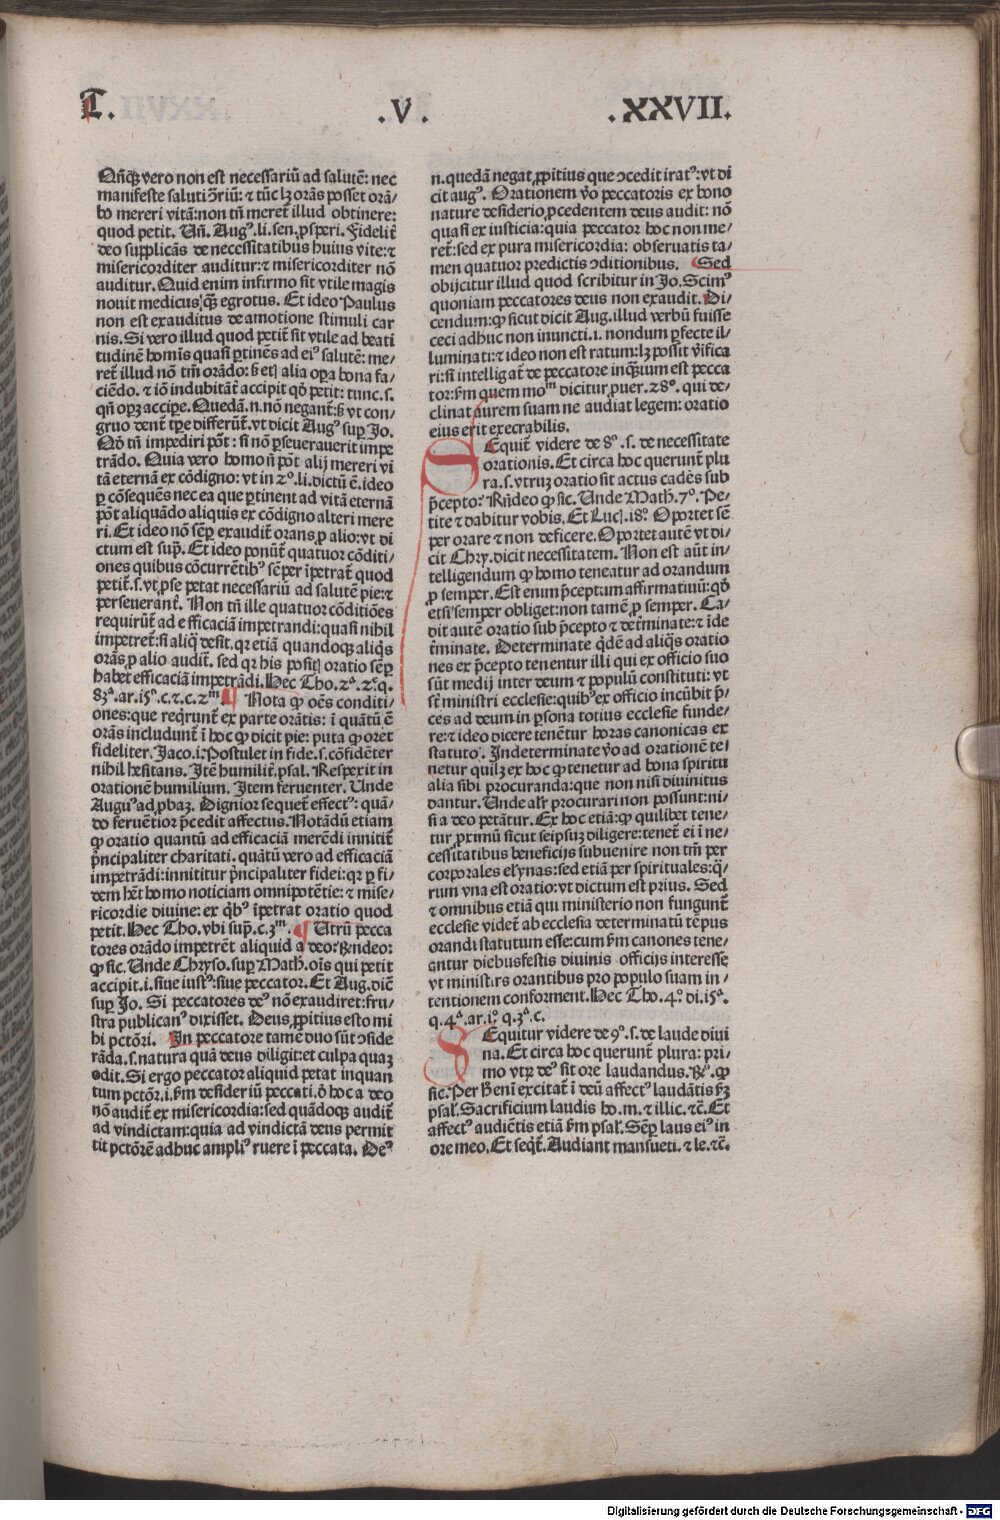 T. .V. .XXVII.
Qñq̃ꝫ vero non est necessariũ ad salutẽ: nec
manifeste saluti ↄ̃riũ: ⁊ tũc lꝫ orãs posset orã/
do mereri vitã: non tñ mereť illud obtinere:
quod petit. Uñ. Augꝰ. li. sen. ꝓsperi. Fideliť
deo supplicãs de necessitatibus huius vite: ⁊
misericorditer auditur: ⁊ misericorditer nõ
auditur. Quid enim infirmo sit vtile magis
nouit medicus q̃ꝫ egrotus. Et ideo Paulus
non est exauditus de amotione stimuli car
nis. Si vero illud quod petiť sit vtile ad beati
tudinẽ homĩs quasi ꝑtinẽs ad eiꝰ salutẽ: me/
reť illud nõ tm̃ orãdo: ß etiã alia oꝑa bona fa/
ciẽdo. ⁊ iõ indubitãť accipit qđ petit: tunc. s.
qñ oꝑꝫ accipe. Quedã. n. nõ negant: ß vt con/
gruo denť tꝑe differũť. vt dicit Augꝰ suꝑ Jo.
Qđ tñ impediri põt: si nõ ꝑseuerauerit impe
trãdo. Quia vero homo ñ põt alij mereri vi
tã eternã ex cõdigno: vt in 2º. li. dictũ ẽ. ideo
ꝑ cõsequẽs nec ea que ꝑtinent ad vitã eternã
põt aliquãdo aliquis ex cõdigno alteri mere
ri. Et ideo nõ sẽꝑ exaudiť orans ꝓ alio: vt di
ctum est sup̃. Et ideo ponũť quatuor cõditi/
ones quibus cõcurrẽtibꝰ sẽꝑ ĩpetrať quod
petiť. s. vt ꝓ se petat necessariũ ad salutẽ pie: ⁊
perseueranť. Non tñ ille quatuor cõditiões
requirũť ad efficaciã impetrandi: quasi nihil
impetreť: si aliq̃ desit. qr etiã quandoqꝫ aliq̃s
orãs ꝓ alio audiť. sed qr his positꝭ oratio sẽꝑ
habet efficaciã impetrãdi. Hec Tho. 2ª. 2ẹ. q.
83ª. ar. i5º. c. ⁊. c. 2ᵐ. ¶ Nota ꝙ oẽs conditi/
ones: que req̃runť ex parte orãtis: ĩ quãtũ ẽ
orãs includunť ĩ hoc ꝙ dicit pie: puta ꝙ oret
fideliter. Jaco. i. Postulet in fide. s. cõfidẽter
nihil hesitans. Itẽ humiliť. psal. Respexit in
orationẽ humilium. Item feruenter. Unde
Auguꝰ ad ꝓbaꝫ. Dignior sequeť effectꝰ: quã/
do feruẽtior p̃cedit affectus. Notãdũ etiam
ꝙ oratio quantũ ad efficaciã merẽdi innitiť
p̃ncipaliter charitati. quãtũ vero ad efficaciã
impetrãdi: innititur p̃ncipaliter fidei: qr ꝑ fi/
dem hẽt homo noticiam omnipotẽtie: ⁊ mise/
ricordie diuine: ex q̃bꝰ ĩpetrat oratio quod
petit. Hec Tho. vbi sup̃. c. 3ᵐ. ¶ Utrũ pecca
tores orãdo impetrẽt aliquid a deo: Rñdeo:
ꝙ sic. Unde Chryso. suꝑ Math. oĩs qui petit
accipit. i. siue iustꝰ: siue peccator. Et Aug. diẽ
suꝑ Jo. Si peccatores deꝰ nõ exaudiret: fru/
stra publicanꝰ dixisset. Deus ꝓpitius esto mi
hi pctõri. In peccatore tamẽ duo sũt ↄside
rãda. s. natura quã deus diligit: et culpa quaꝫ
odit. Si ergo peccator aliquid petat inquan
tum pctõr. i. ẜm desideriũ peccati. ð hoc a deo
nõ audiť ex misericordia: sed quãdoqꝫ audiť
ad vindictam: quia ad vindictã deus permit
tit pctõrẽ adhuc ampliꝰ ruere ĩ peccata. Deꝰ
n. quedã negat ꝓpitius que ↄcedit iratꝰ: vt di
cit augꝰ. Orationem ṽo peccatoris ex bono
nature desiderio ꝓcedentem deus audit: nõ
quasi ex iusticia: quia peccator hoc non me/
reť: sed ex pura misericordia: obseruatis ta/
men quatuor predictis ↄditionibus. ¶ Sed
obijcitur illud quod scribitur in Jo. Scimꝰ
quoniam peccatores deus non exaudit. Di/
cendum: ꝙ sicut dicit Aug. illud verbũ fuisse
ceci adhuc non inuncti. i. nondum ꝑfecte il/
luminati: ⁊ ideo non est ratum: lꝫ possit ṽifica
ri: si intelligať de peccatore inq̃ꝫtum est pecca
tor: ẜm quem moᵐ dicitur ꝓuer. 28º. qui de/
clinat aurem suam ne audiat legem: oratio
eius erit execrabilis.
SEquiť videre de 8º. s. de necessitate
orationis. Et circa hoc querunť plu
ra. s. vtruꝫ oratio sit actus cadẽs sub
p̃cepto: Rñdeo ꝙ sic. Unde Math. 7º. Pe/
tite ⁊ dabitur vobis. Et Luc. i8º. Oportet sẽ
per orare ⁊ non deficere. Oportet autẽ vt di/
cit Chry. dicit necessitatem. Non est aũt in/
telligendum ꝙ homo teneatur ad orandum
ꝓ semper. Est enim p̃ceptum affirmatiuũ: qđ
etsi semper obliget: non tamẽ ꝓ semper. Ca/
dit autẽ oratio sub p̃cepto ⁊ deťminate: ⁊ ĩde
ťminate. Determinate q̃dẽ ad aliq̃s oratio
nes ex p̃cepto tenentur illi qui ex officio suo
sũt medij inter deum ⁊ populũ constituti: vt
sť ministri ecclesie: quibꝰ ex officio incũbit p̃/
ces ad deum in ꝑsona totius ecclesie funde/
re: ⁊ ideo dicere tenẽtur horas canonicas ex
statuto. Indeterminate ṽo ad orationẽ te/
netur quilꝫ ex hoc ꝙ tenetur ad bona spiritu
alia sibi procuranda: que non nisi diuinitus
dantur. Unde alr̃ procurari non possunt: ni/
si a deo petãtur. Ex hoc etiã: ꝙ quilibet tene/
tur ꝓximũ sicut seipsuꝫ diligere: teneť ei ĩ ne/
cessitatibus beneficijs subuenire non tm̃ per
corporales elẏnas: sed etiã per spirituales: q̃/
rum vna est oratio: vt dictum est prius. Sed
⁊ omnibus etiã qui ministerio non funguntť
ecclesie videť ab ecclesia determinatũ tẽpus
orandi statutum esse: cum ẜm canones tene/
antur diebus festis diuinis officijs interesse
vt ministris orantibus pro populo suam in/
tentionem conforment. Hec Tho. 4º. di. i5ª.
q. 4ª. ar. iº. q. 3ª. c.
SEquitur videre de 9º. s. de laude diui
na. Et circa hoc querunt plura: pri/
mo vtꝝ deꝰ sit ore laudandus. Rº. ꝙ
sic. Per hẽni excitať ĩ deũ affectꝰ laudãtis ẜꝫ
psal. Sacrificium laudis ho. m. ⁊ illic. ⁊c̃. Et
affectꝰ audiẽtis etiã ẜm psal. Sẽꝑ laus eiꝰ in
ore meo. Et seqť. Audiant mansueti. ⁊ le. ⁊c̃.
Digitalisierung gefördert durch die Deutsche Forschungsgemeinschaft - DFG